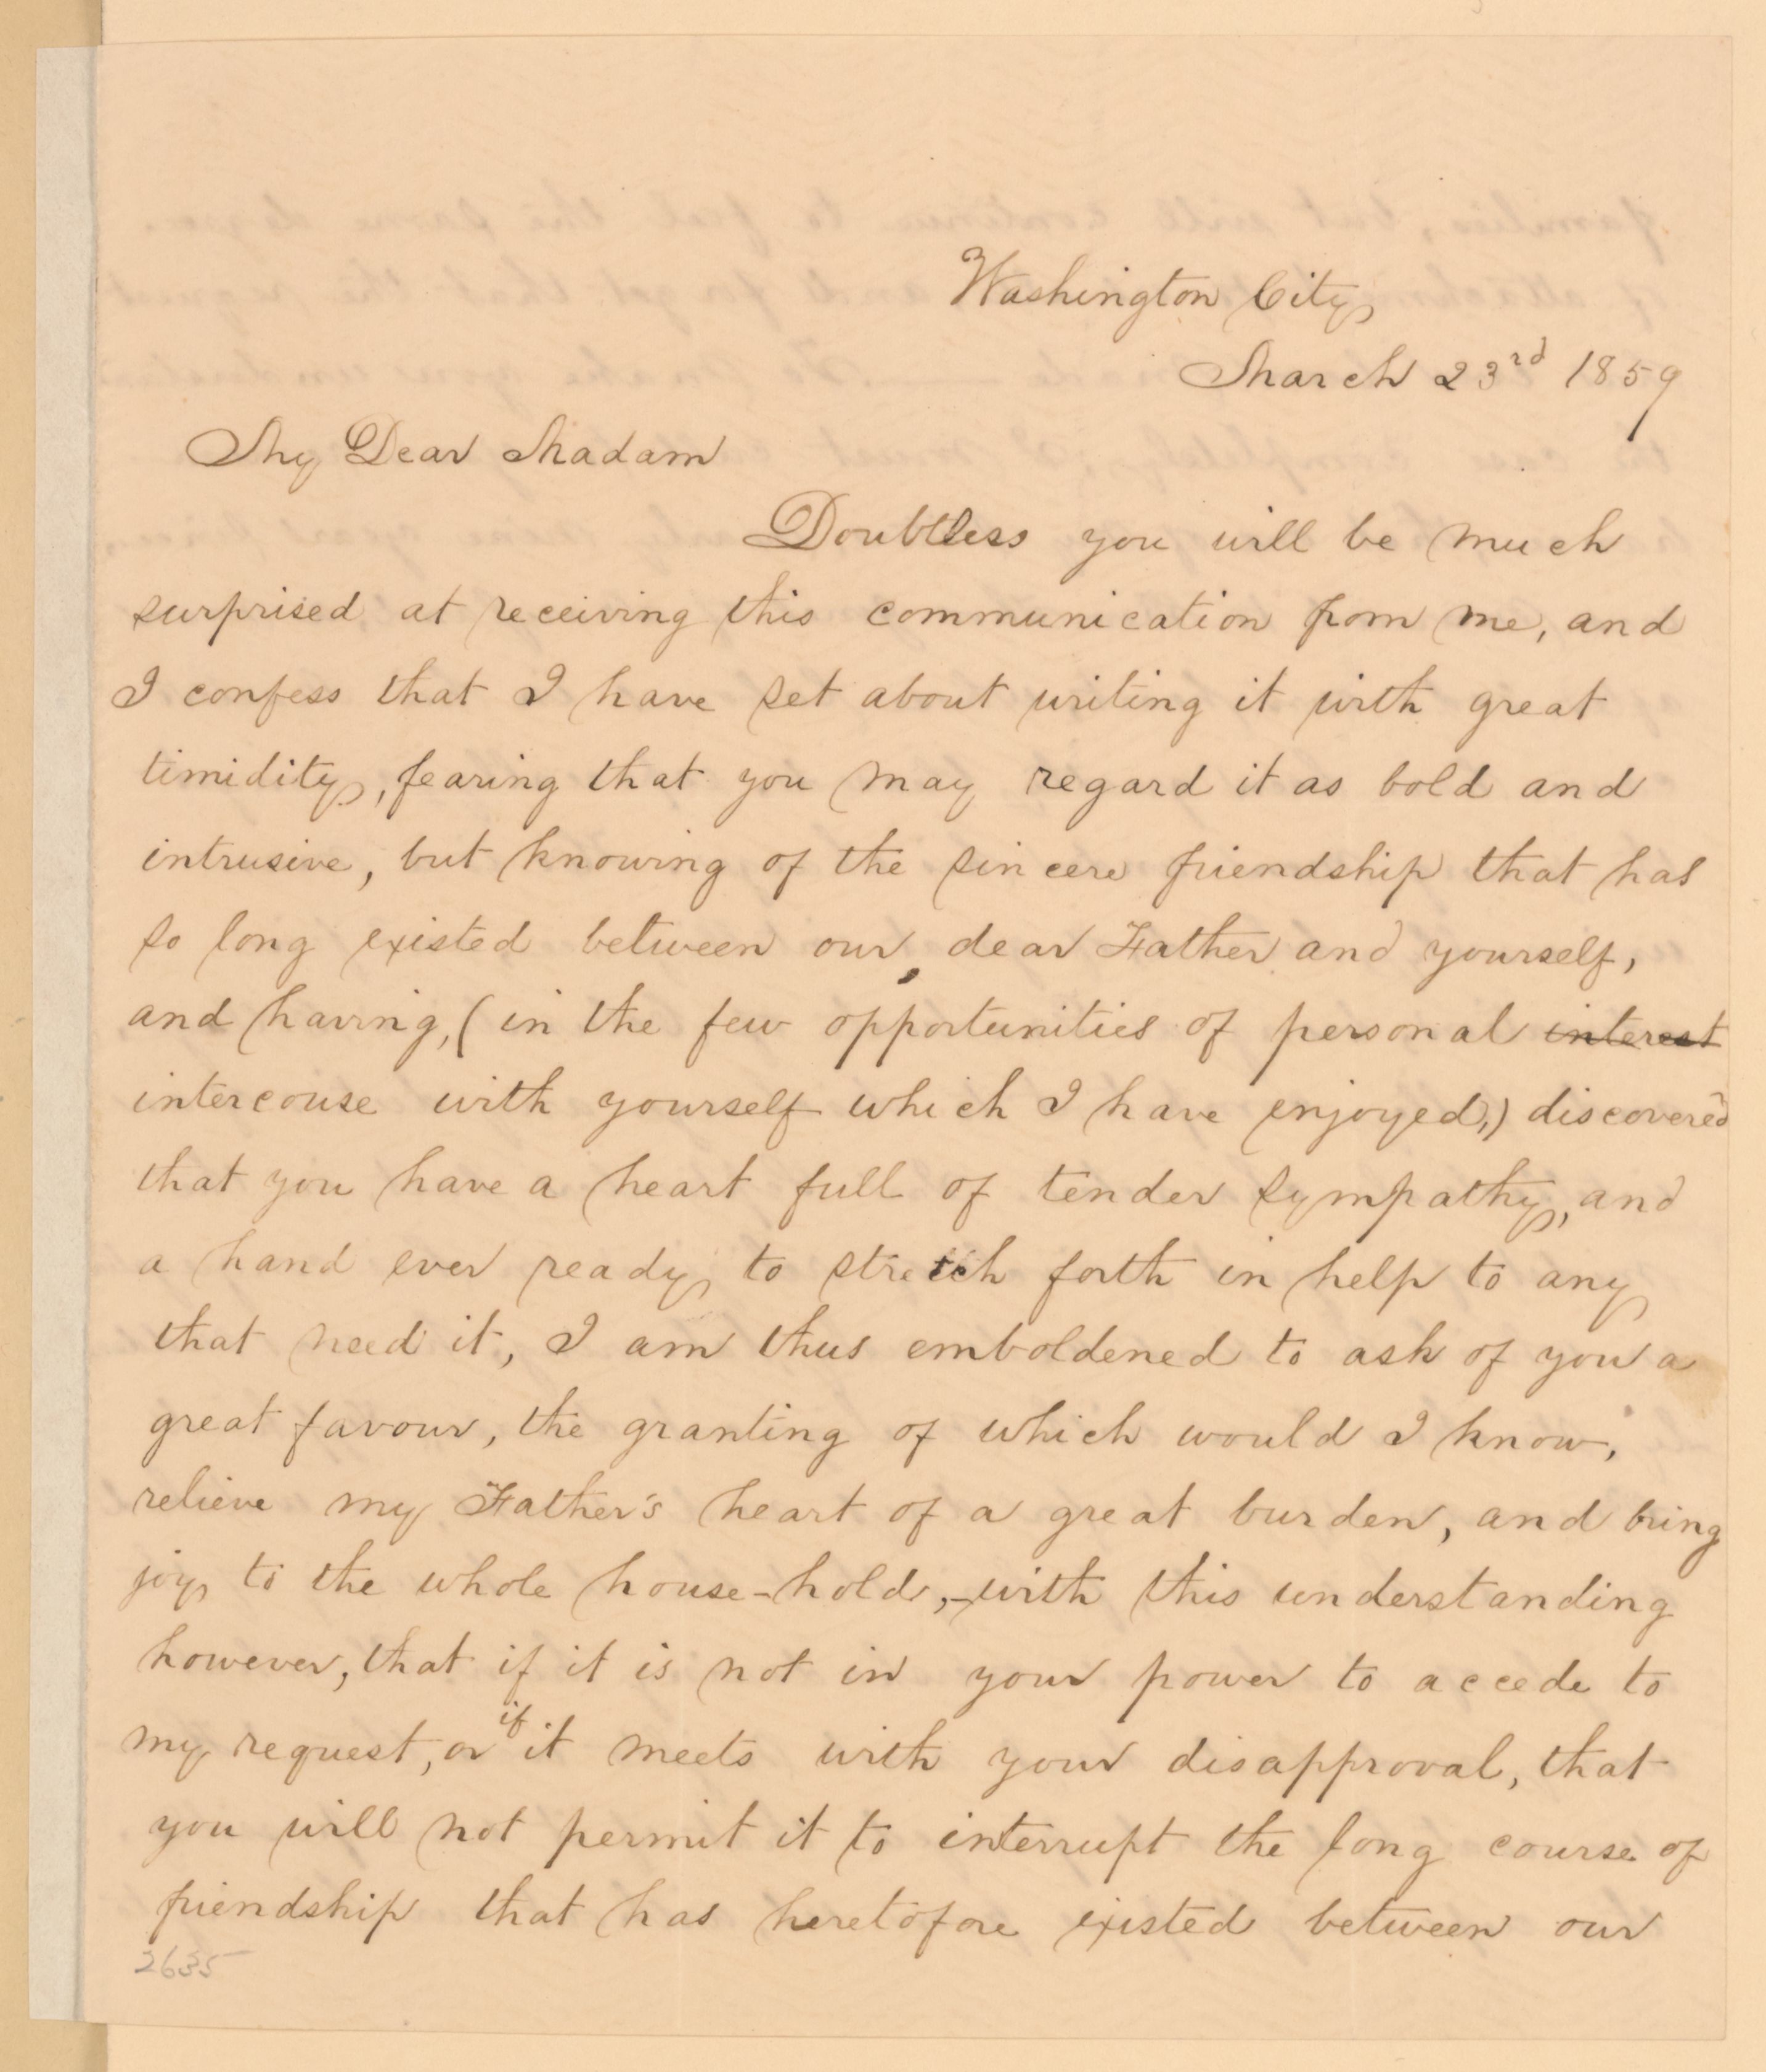 Washington City
March 23rd 1859
My Dear Madam
Doubtless you will be much
surprised at receiving this communication from me, and
I confess that I have set about writing it with great
timidity, fearing that you may regard it as bold and
intrusive, but knowing of the sincere friendship that has
so long existed between our dear Father and yourself,
and having, (in the few opportunities of personal interest
intercouse with yourself which I have enjoyed,) discovered
that you have a heart full of tender sympathy, and
a hand ever ready to stretch forth in help to any
that need it, I am thus emboldened to ask of you a
great favour, the granting of which would I know,
relieve my Father's heart of a great burden, and bring
joy to the whole house-hold,-with this understanding
however, that if it is not in your power to accede to
my request, or if it meets with your disapproval, that
you will not permit it to interrupt the long course of
friendship that has heretofore existed between our
2635